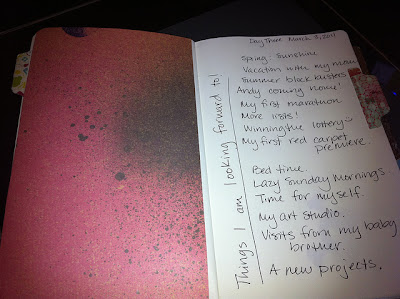 Day Three March 3, 2011
Things I am looking forward to!
Spring: Sunshine
Vacation with my mom
Summer blackbusters
Andy coming home!
My first marathon.
More lists!
Winning the lottery :)
My first red carpet
premiere.
Bed time.
Lazy Sunday Mornings
Time for myself.
My art studio.
Visits from my baby
brother.
A new projects.